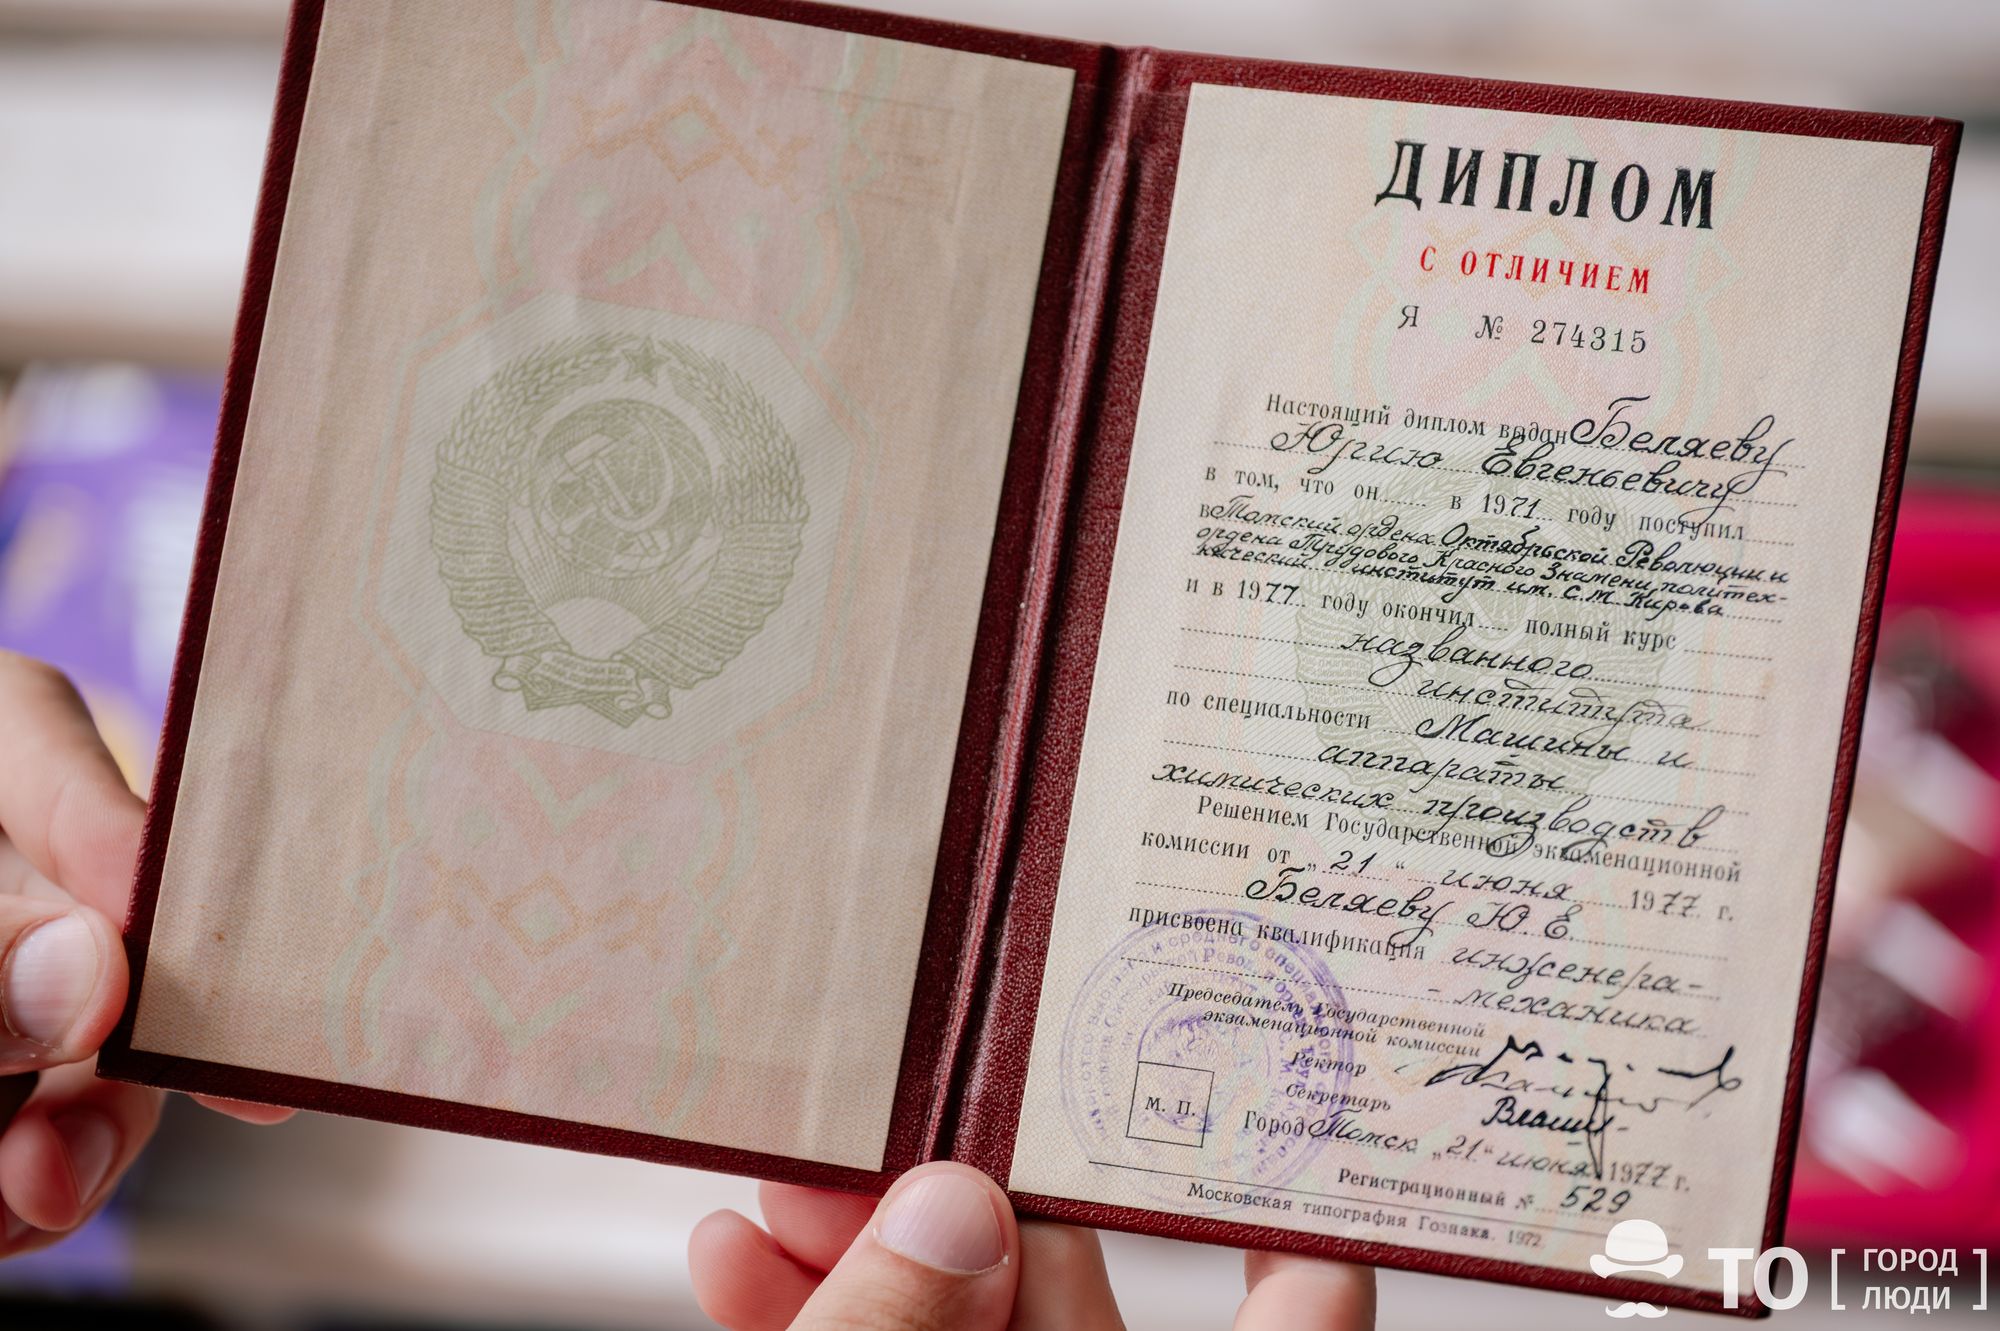 ДИПЛОМ
С ОТЛИЧИЕМ
Я № 274315
Настоящий диплом выдан Беляеву
Юрию Евгеньевичу
в том, что он в 1971 году поступил
в Томский ордена Октябрьской Революции и
ордена Трудового Красного Знамени политех-
нический институт им. С. М. Кирова
и в 1977 году окончил полный курс
названного
института
по специальности Машины и
аппараты
химических производств
Решением Государственной экзаменационной
комиссии от „21“ июня 1977 г.
Беляеву Ю. Е.
присвоена квалификация инженера-
- механика
Председатель Государственной
экзаменационной комиссии
Ректор
Секретарь
М. П.
Город Томск „21“ июня 1977 г.
Регистрационный № 529
Московская типография Гознака. 1972.
ТО [ ГОРОД
ЛЮДИ ]